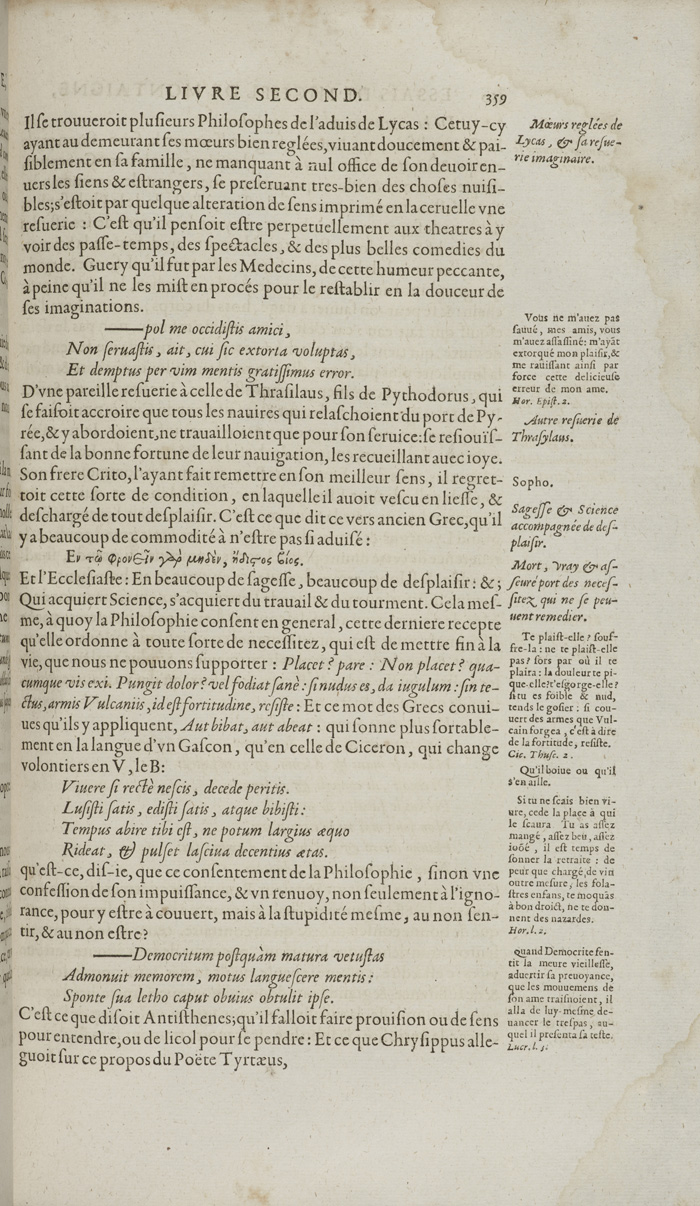 LIVRE SECOND. 359
Il se trouueroit plusieurs Philosophes de l'aduis de Lycas : Cetuy-cy
ayant au demeurant ses mœurs bien reglées, viuant doucement & pai-
siblement en sa famille, ne manquant à nul office de son deuoir en-
uers les siens & estrangers, se preseruant tres-bien des choses nuisi-
bles; s'estoit par quelque alteration de sens imprimé en la ceruelle vne
resuerie : C'est qu'il pensoit estre perpetuellement aux theatres à y
voir des passe-temps, des spectacles, & des plus belles comedies du
monde. Guery qu'il fut par les Medecins, de cette humeur peccante,
à peine qu'il ne les mist en procés pour le restablir en la douceur de
ses imaginations.
——pol me occidistis amici,
Non seruastis, ait, cui sic extorta voluptas,
Et demptus per vim mentis gratissimus error.
D'vne pareille resuerie à celle de Thrasilaus, fils de Pythodorus, qui
se faisoit accroire que tous les nauires qui relaschoient du port de Py-
rée, & y abordoient, ne trauailloient que pour son seruice: se resiouïs-
sant de la bonne fortune de leur nauigation, les recueillant auec ioye.
Son frere Crito, l'ayant fait remettre en son meilleur sens, il regret-
toit cette sorte de condition, en laquelle il auoit vescu en liesse, &
deschargé de tout desplaisir. C'est ce que dit ce vers ancien Grec, qu'il
y a beaucoup de commodité à n'estre pas si aduisé :
Εν τῷ φρονεῖν γὰρ μηδὲν, ἥδιςος βίος.
Et l'Ecclesiaste : En beaucoup de sagesse, beaucoup de desplaisir : & ;
Qui acquiert Science, s'acquiert du trauail & du tourment. Cela mes-
me, à quoy la Philosophie consent en general, cette derniere recepte
qu'elle ordonne à toute sorte de necessitez, qui est de mettre fin à la
vie, que nous ne pouuons supporter : Placet ? pare : Non placet ? qua-
cumque vis exi. Pungit dolor ? vel fodiat sanè : si nudus es, da iugulum : sin te-
ctus, armis Vulcaniis, id est fortitudine, resiste : Et ce mot des Grecs conui-
ues qu'ils y appliquent, Aut bibat, aut abeat : qui sonne plus sortable-
ment en la langue d'vn Gascon, qu'en celle de Ciceron, qui change
volontiers en V, le B:
Viuere si rectè nescis, decede peritis.
Lusisti satis, edisti satis, atque bibisti :
Tempus abire tibi est, ne potum largius æquo
Rideat, & pulset lasciua decentius ætas.
qu'est-ce, dis-ie, que ce consentement de la Philosophie, sinon vne
confession de son impuissance, & vn renuoy, non seulement à l'igno-
rance, pour y estre à couuert, mais à la stupidité mesme, au non sen-
tir, & au non estre?
——Democritum postquàm matura vetustas
Admonuit memorem, motus languescere mentis :
Sponte sua letho caput obuius obtulit ipse.
C'est ce que disoit Antisthenes; qu'il falloit faire prouision ou de sens
pour entendre, ou de licol pour se pendre : Et ce que Chrysippus alle-
guoit sur ce propos du Poëte Tyrtæus,
Mœurs reglées de
Lycas, & sa resue-
rie imaginaire.
Vous ne m'auez pas
sauué, mes amis, vous
m'auez assassiné: m'ayāt
extorqué mon plaisir, &
me rauissant ainsi par
force cette delicieuse
erreur de mon ame.
Hor. Epist. 2.
Autre resuerie de
Thrasylaus.
Sopho.
Sagesse & Science
accompagnée de des-
plaisir.
Mort, vray & as-
seuré port des neces-
sitez, qui ne se peu-
uent remedier.
Te plaist-elle ? souf-
fre-la : ne te plaist-elle
pas ? sors par où il te
plaira : la douleur te pi-
que-elle ? t'esgorge-elle ?
si tu es foible & nud,
tends le gosier : si cou-
uert des armes que Vul-
cain forgea, c'est à dire
de la fortitude, resiste.
Cic. Thusc. 2.
Qu'il boiue ou qu'il
s'en aille.
Si tu ne sçais bien vi-
ure, cede la place à qui
le sçaura Tu as assez
mangé, assez beu, assez
ioüé, il est temps de
sonner la retraite : de
peur que chargé, de vin
outre mesure, les fola-
stres enfans, te moquās
à bon droict, ne te don-
nent des nazardes.
Hor. l. 2.
quand Democrite sen-
tit la meure vieillesse,
aduertir sa preuoyance,
que les mouuemens de
son ame traisnoient, il
alla de luy-mesme de-
uancer le trespas, au-
quel il presenta sa teste.
Lucr. l. 3.